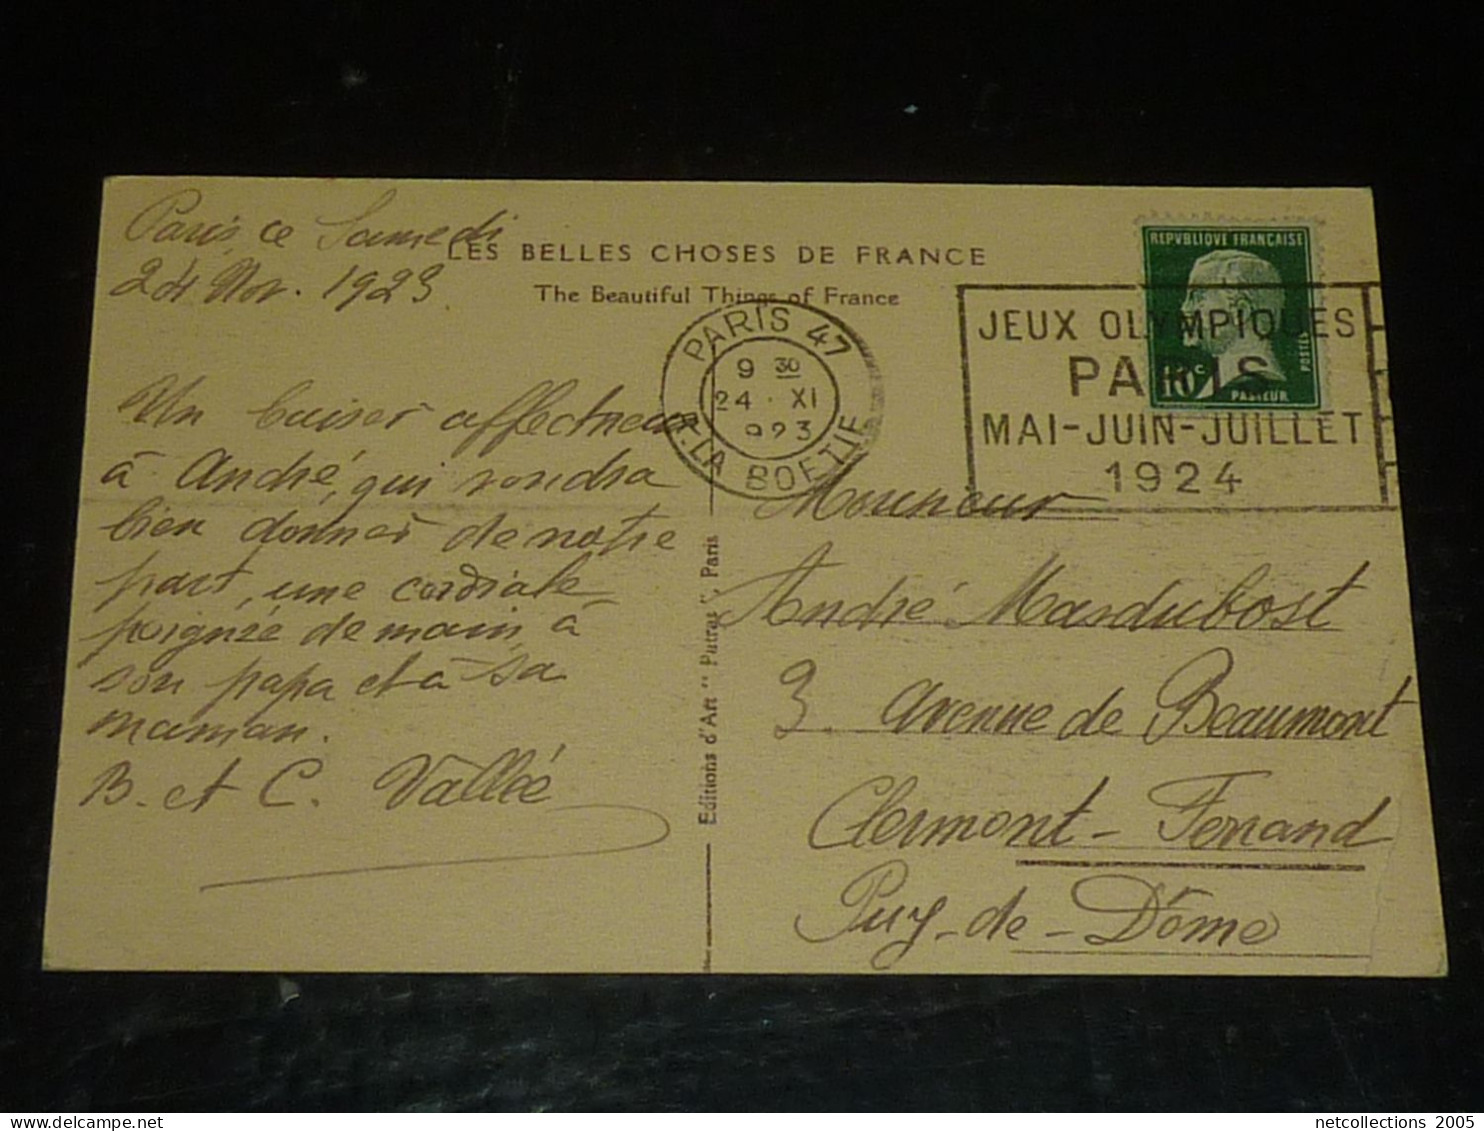 Paris, ce Samedi
24 Nov. 1923.
LES BELLES CHOSES DE FRANCE
The Beautiful Things of France
Un baiser affectueux
à André, qui voudra
bien donner de notre
part, une cordiale
poignée de main à
son papa et à sa
maman.
B. et C. Vallée
Editions d'Art "Patras", Paris
PARIS 47
9 30
24 · XI
923
R. LA BOETIE
REPVBLIQVE FRANÇAISE
POSTES
10c
PASTEUR
JEUX OLYMPIQUES
PARIS
MAI-JUIN-JUILLET
1924
Monsieur
André Mardubost
3 Avenue de Beaumont
Clermont-Ferrand
Puy-de-Dôme
netcollections 2005